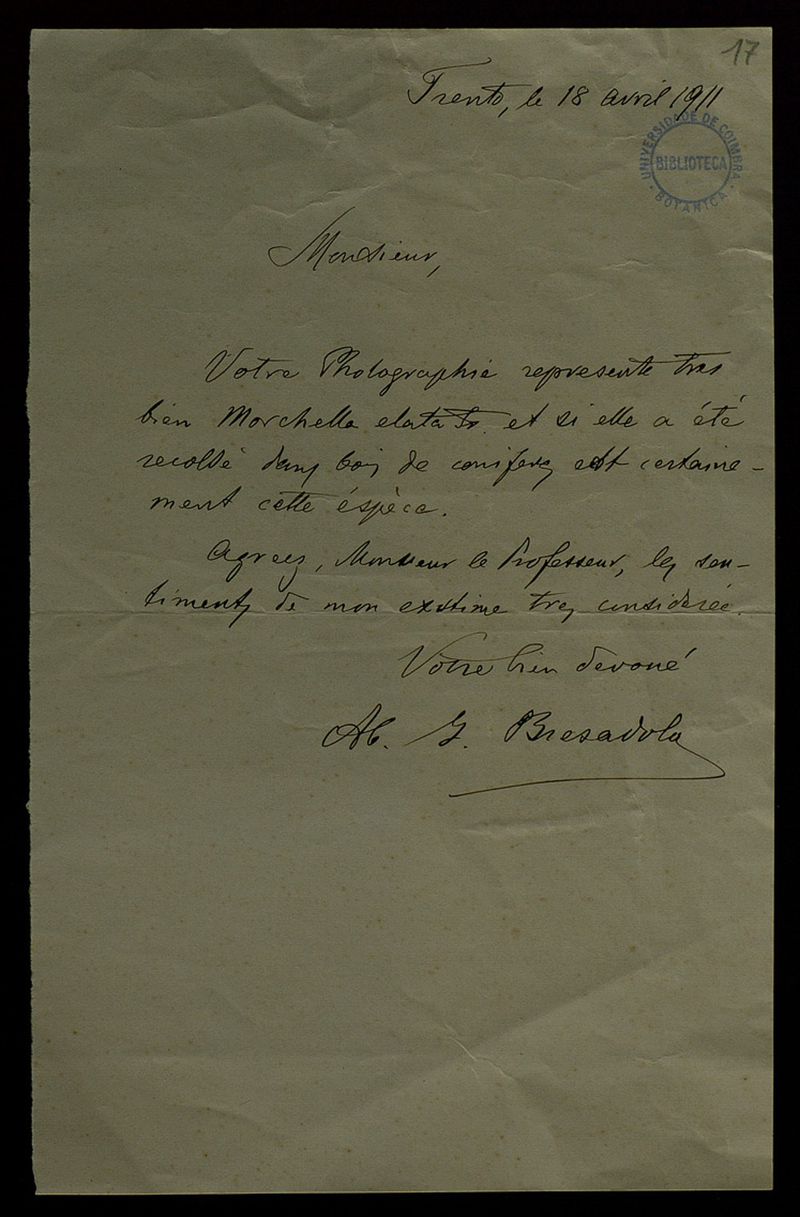 17
Trento, le 18 avril 1911
UNIVERSIDADE DE COIMBRA
BIBLIOTECA
BOTANICA
Monsieur,
Votre Photographie represente tres
bien Morchella elata Fr. et si elle a été
recolté dans bois de coniferes est certaine-
ment cette éspèce.
Agreez, Monsieur le Professeur, les sen-
timents de mon exstime tres considerée.
Votre bien devoué
Ab. G. Bresadola